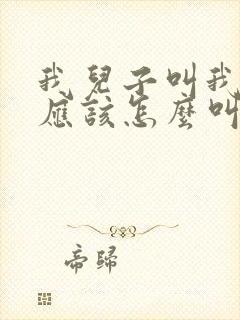 我兒子叫我
應該怎麼叫
帝歸